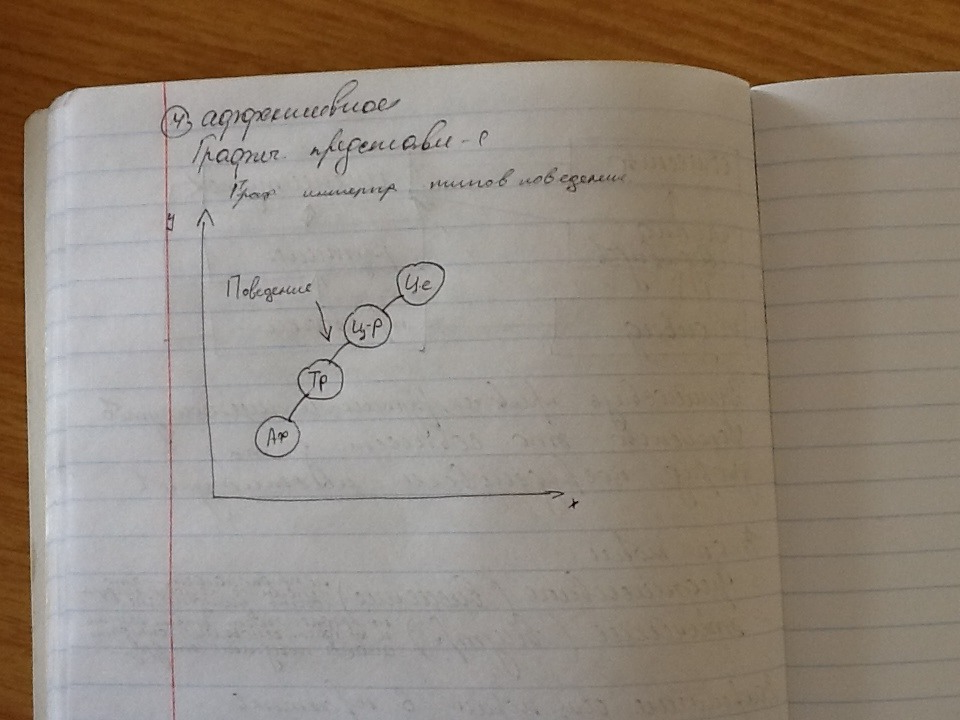 4) аффективное
Графич. представл-е
Граф интерпр типов поведения
y
Поведение
Це
Ц-Р
Тр
Аф
x